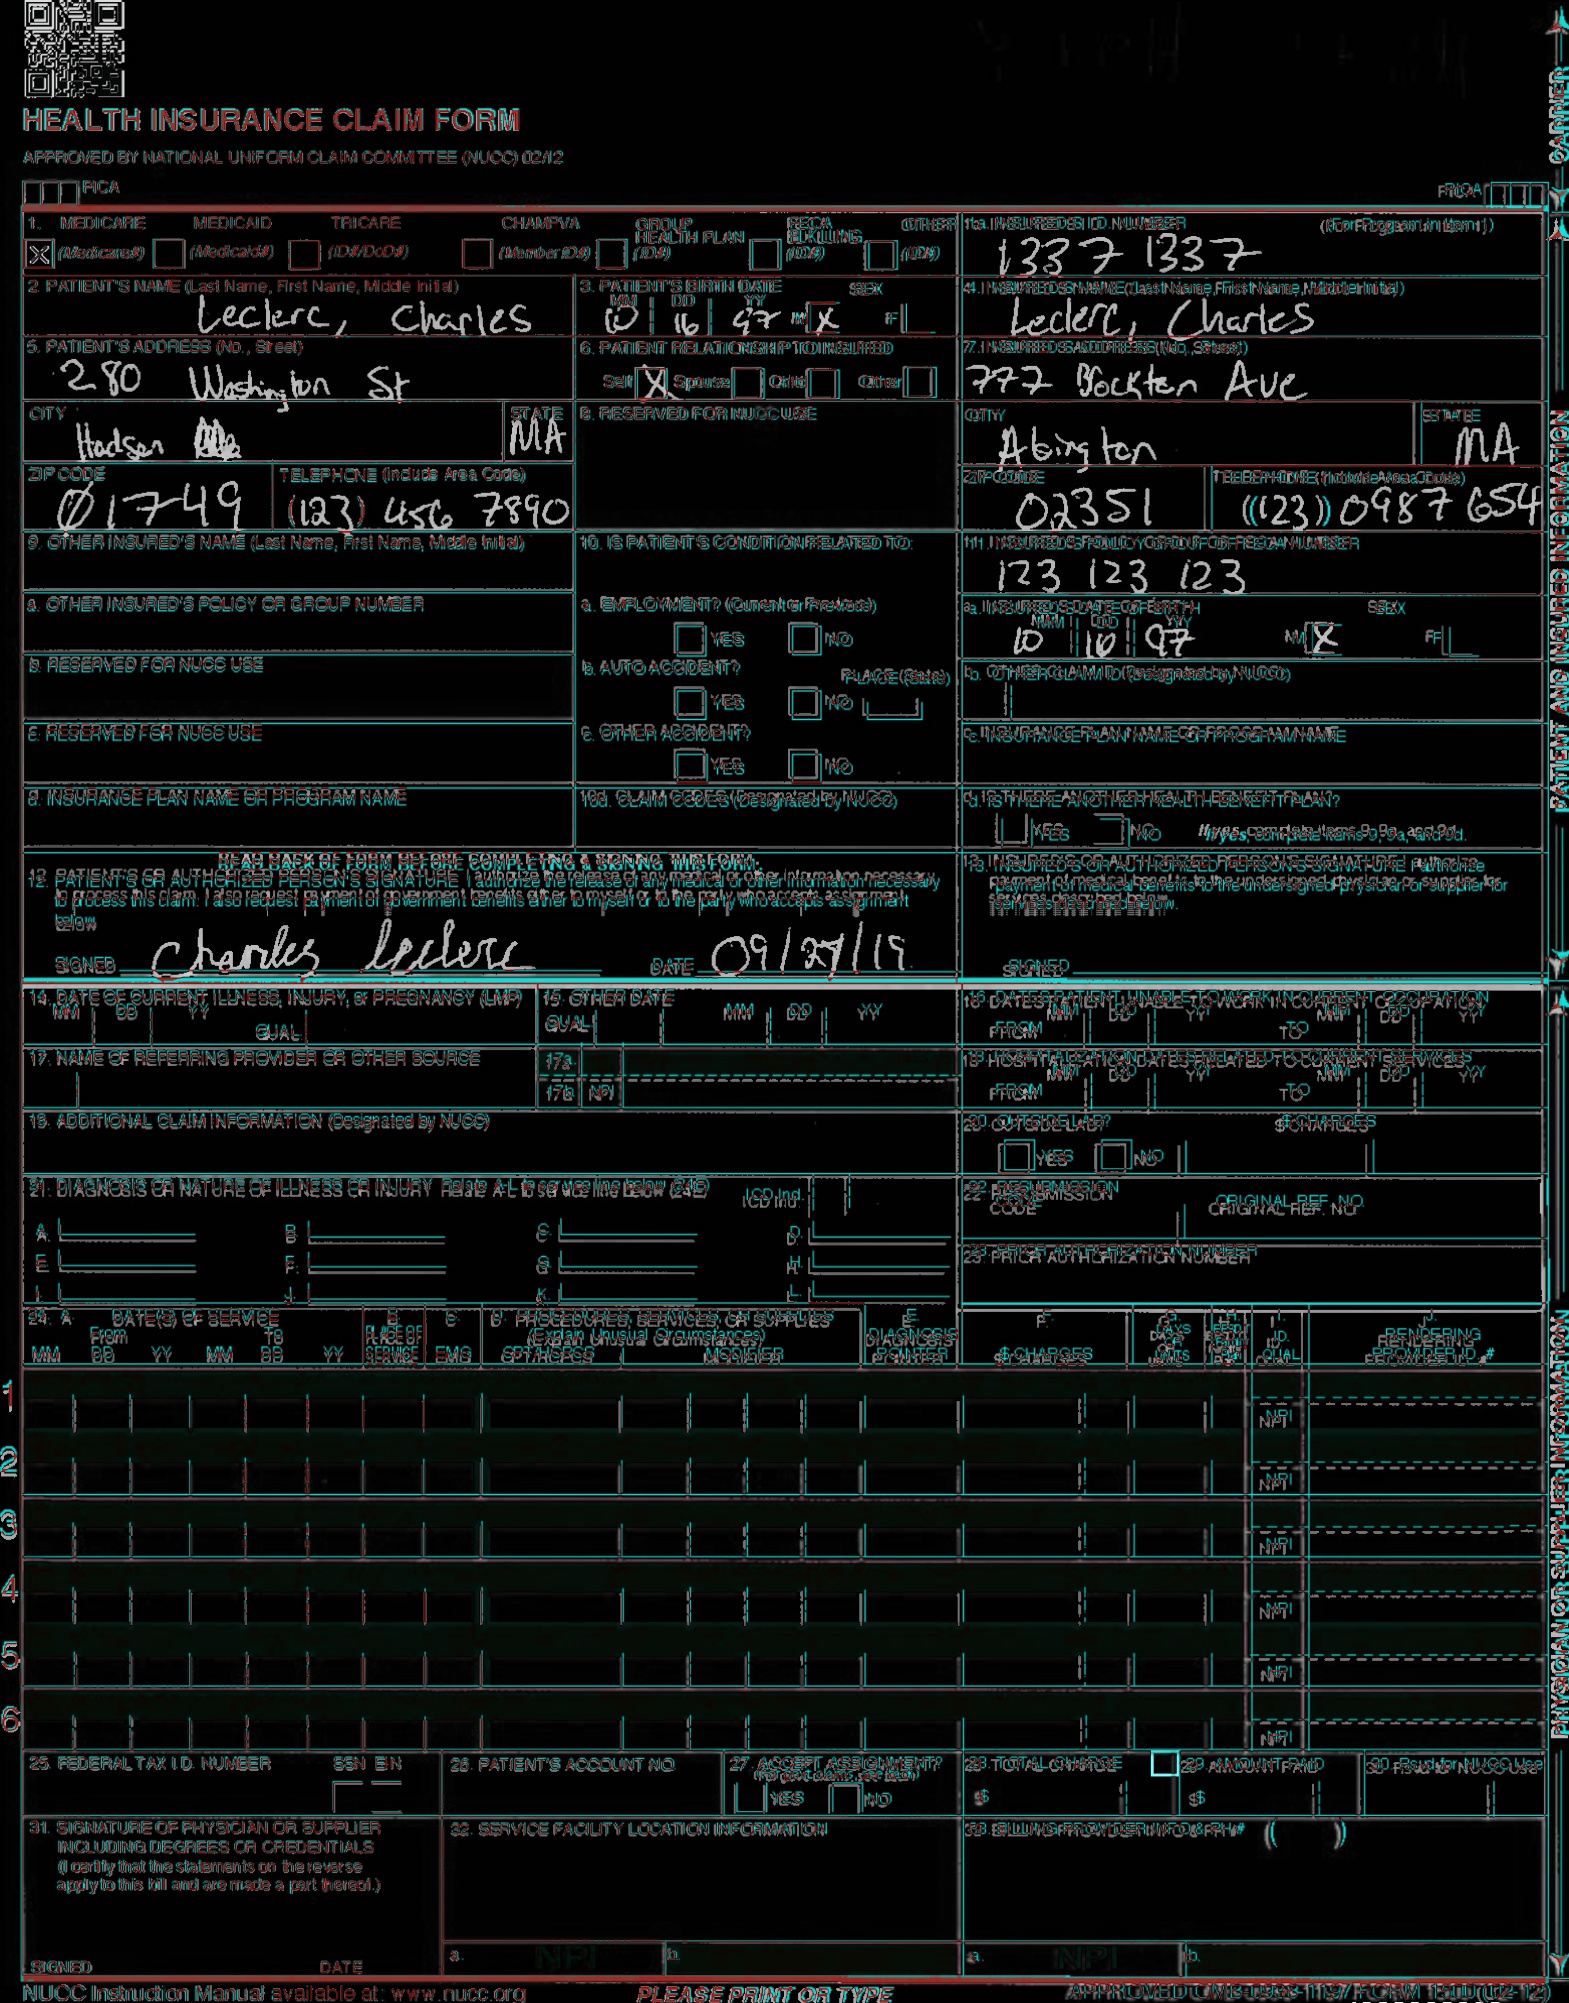 HEALTH INSURANCE CLAIM FORM
APPROVED BY NATIONAL UNIFORM CLAIM COMMITTEE (NUCC) 02/12
PICA
PICA
1. MEDICARE MEDICAID TRICARE CHAMPVA GROUP HEALTH PLAN FECA BLK LUNG OTHER
X (Medicare#) (Medicaid#) (ID#/DoD#) (Member ID#) (ID#) (ID#) (ID#)
1a. INSURED'S I.D. NUMBER (For Program in Item 1)
1337 1337
2. PATIENT'S NAME (Last Name, First Name, Middle Initial)
Leclerc, Charles
3. PATIENT'S BIRTH DATE SEX
MM DD YY
10 16 97 M X F
4. INSURED'S NAME (Last Name, First Name, Middle Initial)
Leclerc, Charles
5. PATIENT'S ADDRESS (No., Street)
280 Washington St
6. PATIENT RELATIONSHIP TO INSURED
Self X Spouse Child Other
7. INSURED'S ADDRESS (No., Street)
777 Brockton Ave
CITY STATE
Hudson MA
8. RESERVED FOR NUCC USE
CITY STATE
Abington MA
ZIP CODE TELEPHONE (Include Area Code)
01749 (123) 456 7890
ZIP CODE TELEPHONE (Include Area Code)
02351 (123) 0987 654
9. OTHER INSURED'S NAME (Last Name, First Name, Middle Initial)
10. IS PATIENT'S CONDITION RELATED TO:
11. INSURED'S POLICY GROUP OR FECA NUMBER
123 123 123
a. OTHER INSURED'S POLICY OR GROUP NUMBER
a. EMPLOYMENT? (Current or Previous)
YES NO
a. INSURED'S DATE OF BIRTH SEX
MM DD YY
10 16 97 M X F
b. RESERVED FOR NUCC USE
b. AUTO ACCIDENT? PLACE (State)
YES NO
b. OTHER CLAIM ID (Designated by NUCC)
c. RESERVED FOR NUCC USE
c. OTHER ACCIDENT?
YES NO
c. INSURANCE PLAN NAME OR PROGRAM NAME
d. INSURANCE PLAN NAME OR PROGRAM NAME
10d. CLAIM CODES (Designated by NUCC)
d. IS THERE ANOTHER HEALTH BENEFIT PLAN?
YES NO If yes, complete items 9, 9a, and 9d.
READ BACK OF FORM BEFORE COMPLETING & SIGNING THIS FORM.
12. PATIENT'S OR AUTHORIZED PERSON'S SIGNATURE I authorize the release of any medical or other information necessary
to process this claim. I also request payment of government benefits either to myself or to the party who accepts assignment
below
SIGNED Charles Leclerc DATE 09/27/19
13. INSURED'S OR AUTHORIZED PERSON'S SIGNATURE I authorize
payment of medical benefits to the undersigned physician or supplier for
services described below.
SIGNED
14. DATE OF CURRENT ILLNESS, INJURY, or PREGNANCY (LMP)
MM DD YY QUAL.
15. OTHER DATE
QUAL. MM DD YY
16. DATES PATIENT UNABLE TO WORK IN CURRENT OCCUPATION
MM DD YY MM DD YY
FROM TO
17. NAME OF REFERRING PROVIDER OR OTHER SOURCE
17a.
17b. NPI
18. HOSPITALIZATION DATES RELATED TO CURRENT SERVICES
MM DD YY MM DD YY
FROM TO
19. ADDITIONAL CLAIM INFORMATION (Designated by NUCC)
20. OUTSIDE LAB? $ CHARGES
YES NO
21. DIAGNOSIS OR NATURE OF ILLNESS OR INJURY Relate A-L to service line below (24E) ICD Ind.
A. B. C. D.
E. F. G. H.
I. J. K. L.
22. RESUBMISSION CODE ORIGINAL REF. NO.
23. PRIOR AUTHORIZATION NUMBER
24. A. DATE(S) OF SERVICE B. C. D. PROCEDURES, SERVICES, OR SUPPLIES E. F. G. H. I. J.
From To PLACE OF (Explain Unusual Circumstances) DIAGNOSIS DAYS OR ID. RENDERING
MM DD YY MM DD YY SERVICE EMG CPT/HCPCS MODIFIER POINTER $ CHARGES UNITS QUAL. PROVIDER ID. #
1 NPI
2 NPI
3 NPI
4 NPI
5 NPI
6 NPI
25. FEDERAL TAX I.D. NUMBER SSN EIN
26. PATIENT'S ACCOUNT NO.
27. ACCEPT ASSIGNMENT?
(For govt. claims, see back)
YES NO
28. TOTAL CHARGE
$
29. AMOUNT PAID
$
30. Rsvd for NUCC Use
31. SIGNATURE OF PHYSICIAN OR SUPPLIER
INCLUDING DEGREES OR CREDENTIALS
(I certify that the statements on the reverse
apply to this bill and are made a part thereof.)
SIGNED DATE
32. SERVICE FACILITY LOCATION INFORMATION
a. NPI b.
33. BILLING PROVIDER INFO & PH# ( )
a. NPI b.
NUCC Instruction Manual available at: www.nucc.org
PLEASE PRINT OR TYPE
APPROVED OMB-0938-1197 FORM 1500 (02-12)
CARRIER
PATIENT AND INSURED INFORMATION
PHYSICIAN OR SUPPLIER INFORMATION